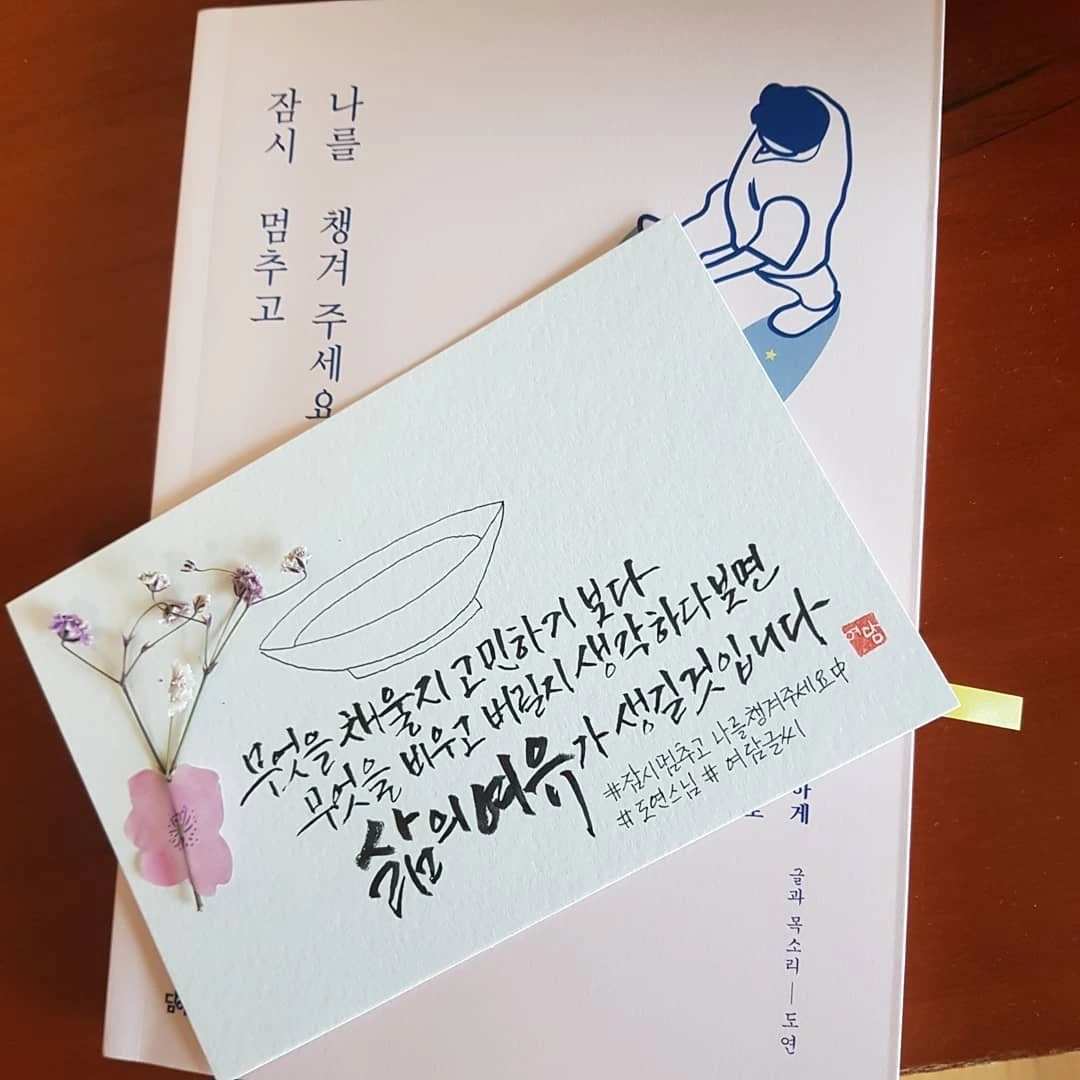 잠시 멈추고
나를 챙겨 주세요
무엇을 채울지 고민하기 보다
무엇을 비우고 버릴지 생각하다보면
삶의 여유가 생길것입니다
여담
#잠시멈추고 나를챙겨주세요中
#도연스님 # 여담글씨
하게
글과 목소리 — 도연